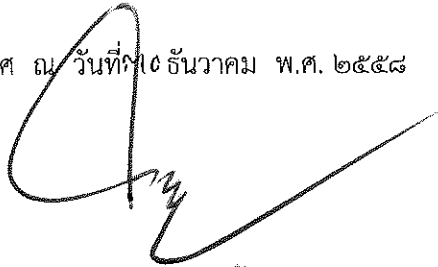 ศ ณ วันที่ ธันวาคม พ.ศ. ๒๕๕๘